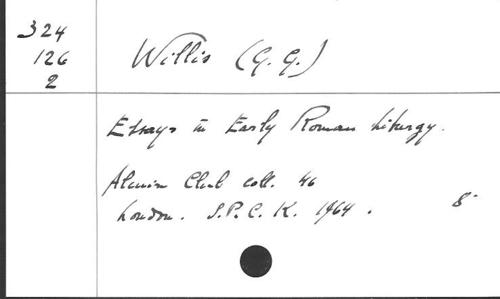 324
126
2
Willis (G. G.)
Essays in Early Roman Liturgy.
Alcuin Club coll. 46
London. S.P.C.K. 1964.
8°